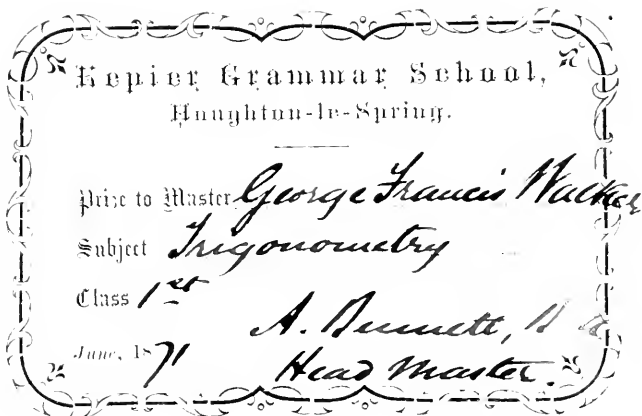 Kepier Grammar School,
Houghton-le-Spring.
Prize to Master George Francis Walker
Subject Trigonometry
Class 1st
June, 1871
A. Bennett,
Head Master.